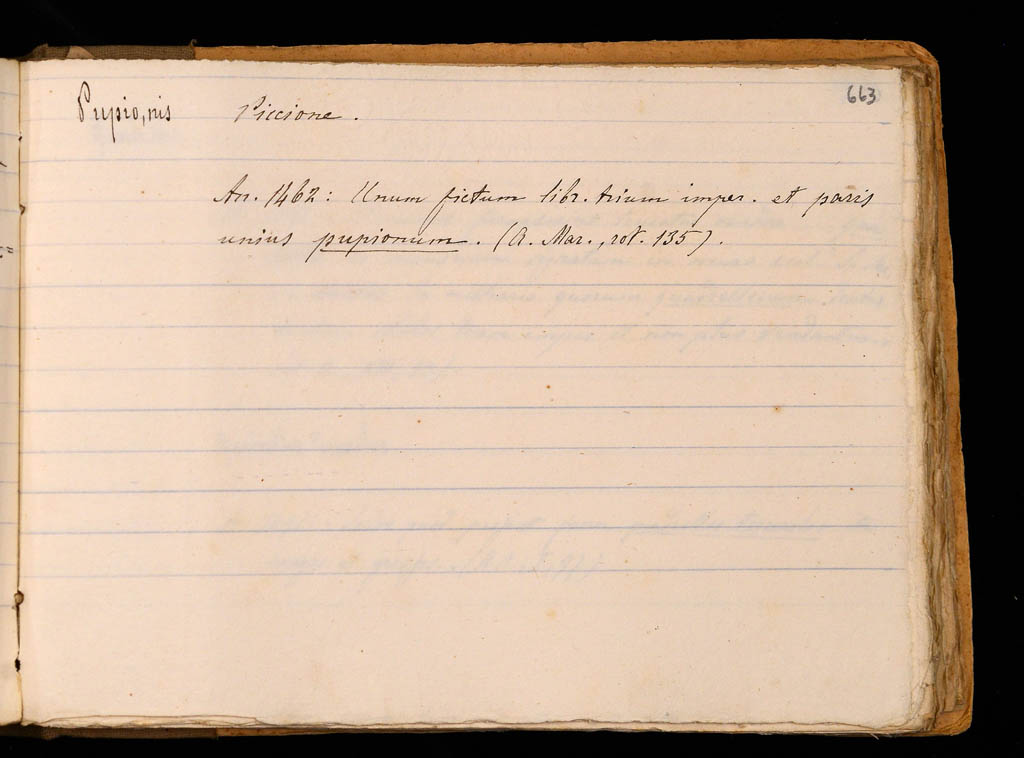 663
Pupio, nis Piccione.
An. 1462: Unum fictum libr. trium imper. et paris
unius pupionum. (A. Mar., rot. 135).